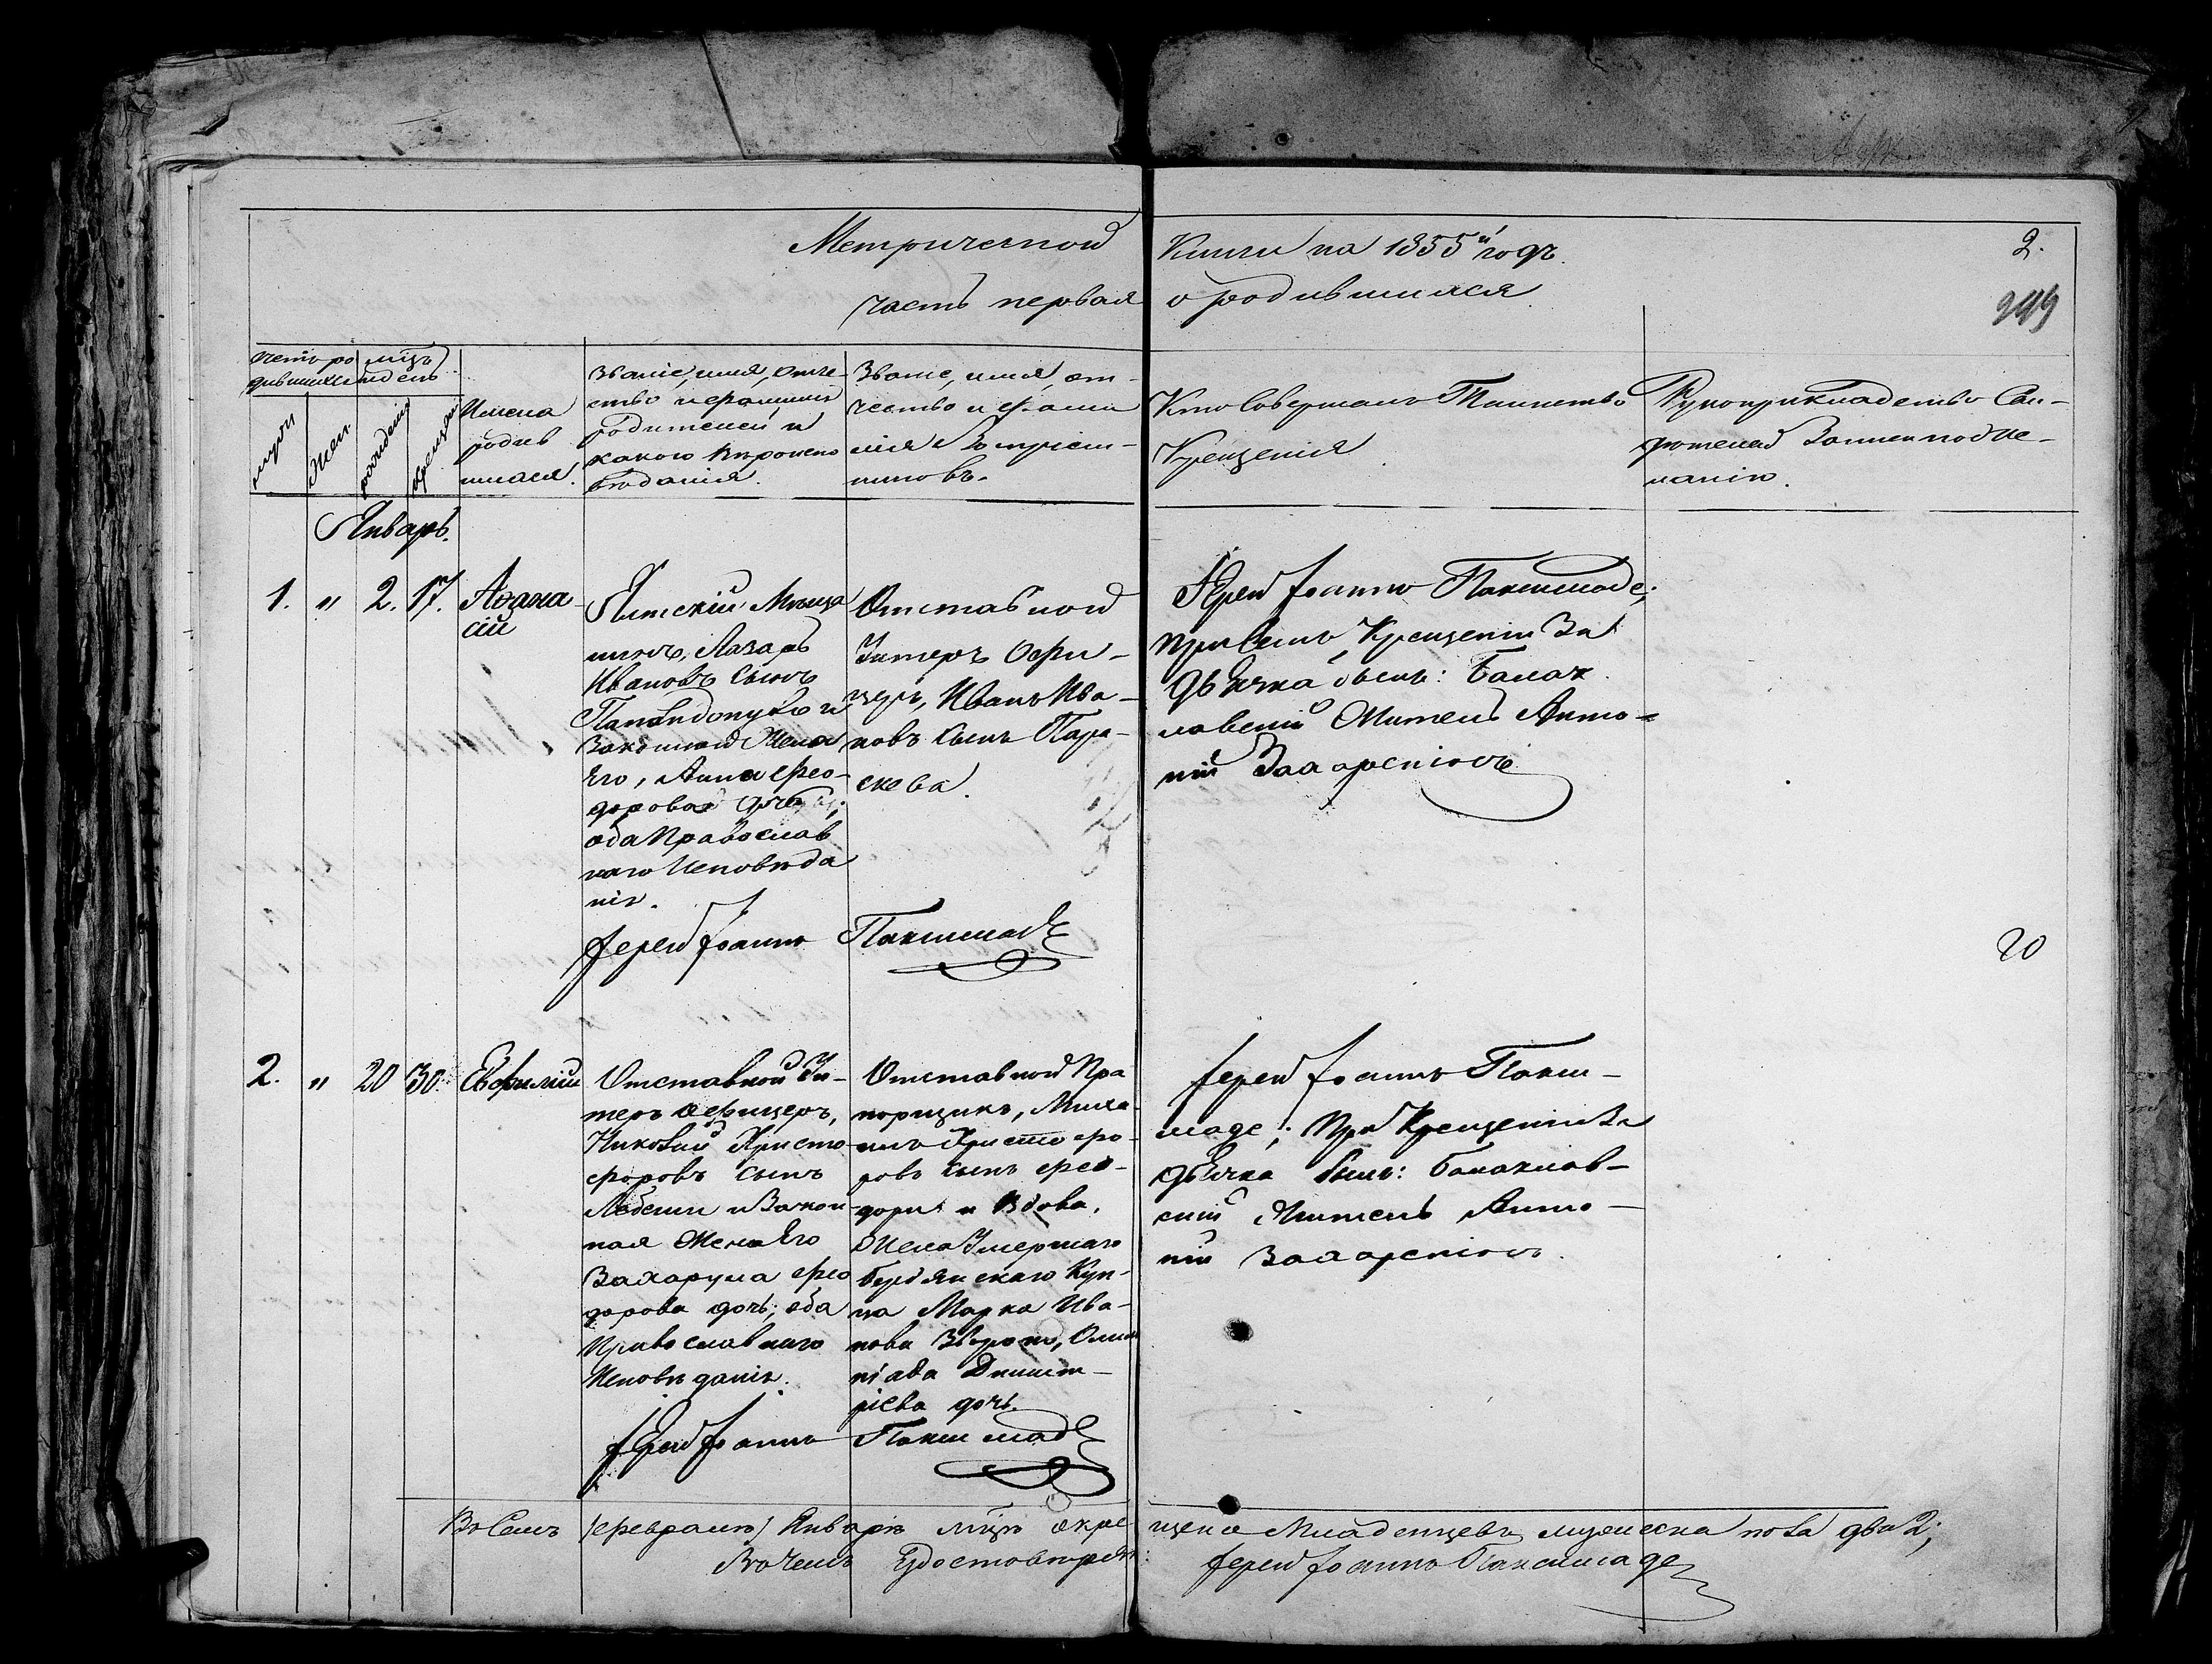 Метрической Книги на 1855й годъ. 2.
часть первая о родившихся
счетъ ро
дившихся
мцъ
и день
мужс
жен.
рожденія
крещенія
Имена
родив
шихся.
Званіе, имя, отче-
ство и фамилия
родителей и
какого вѣроиспо
вѣданія.
Званіе, имя, от-
чество и фами
лія Воспріем-
никовъ.
Кто Совершалъ Таинство
Крещенія
Рукоприкладство Сви-
дѣтелей Записи по же-
ланію.
Январь.
1. " 2. 17. Аѳана
сій
Ялтскій Мѣща
нинъ, Лазарь
Ивановъ Сынъ
и
Законная Жена
Его, Анна Фео-
дорова дочь;
оба Православ
наго Исповѣда
нія.
Отставной
Унтеръ Офи-
церъ, Иванъ Ива-
новъ Сынъ Пара-
скева.
Іерей Іоаннъ Паксимаде;
при семъ Крещеніи За
дьячка былъ: Балак
лавский Житель Анто-
ній
Іерей Іоаннъ Паксимаде
20
2. " 20 30. Евфимій
Отставной Ун-
теръ Офицеръ,
Николай Христо
форовъ Сынъ
и Закон-
ная Жена Его
Захарула Фео
дорова дочь; оба
Православнаго
Исповѣданія.
Отставной Пра
порщикъ, Миха-
илъ Христофо-
ровъ Сынъ Фео-
дори и Вдова,
Жена Умершаго
Бердянскаго Куп-
ца Марка Ива-
нова Олим
піада Димит-
ріева дочь.
Іерей Іоаннъ Пакси-
маде; При Крещеніи За
дьячка былъ: Балаклав-
ский Житель Анто-
ній
Іерей Іоаннъ Паксимаде
Въ Семъ Январѣ мцѣ окре щено Младенцевъ мужеска пола два 2;
Въ чемъ Удостовѣряю: Іерей Іоаннъ Паксимаде